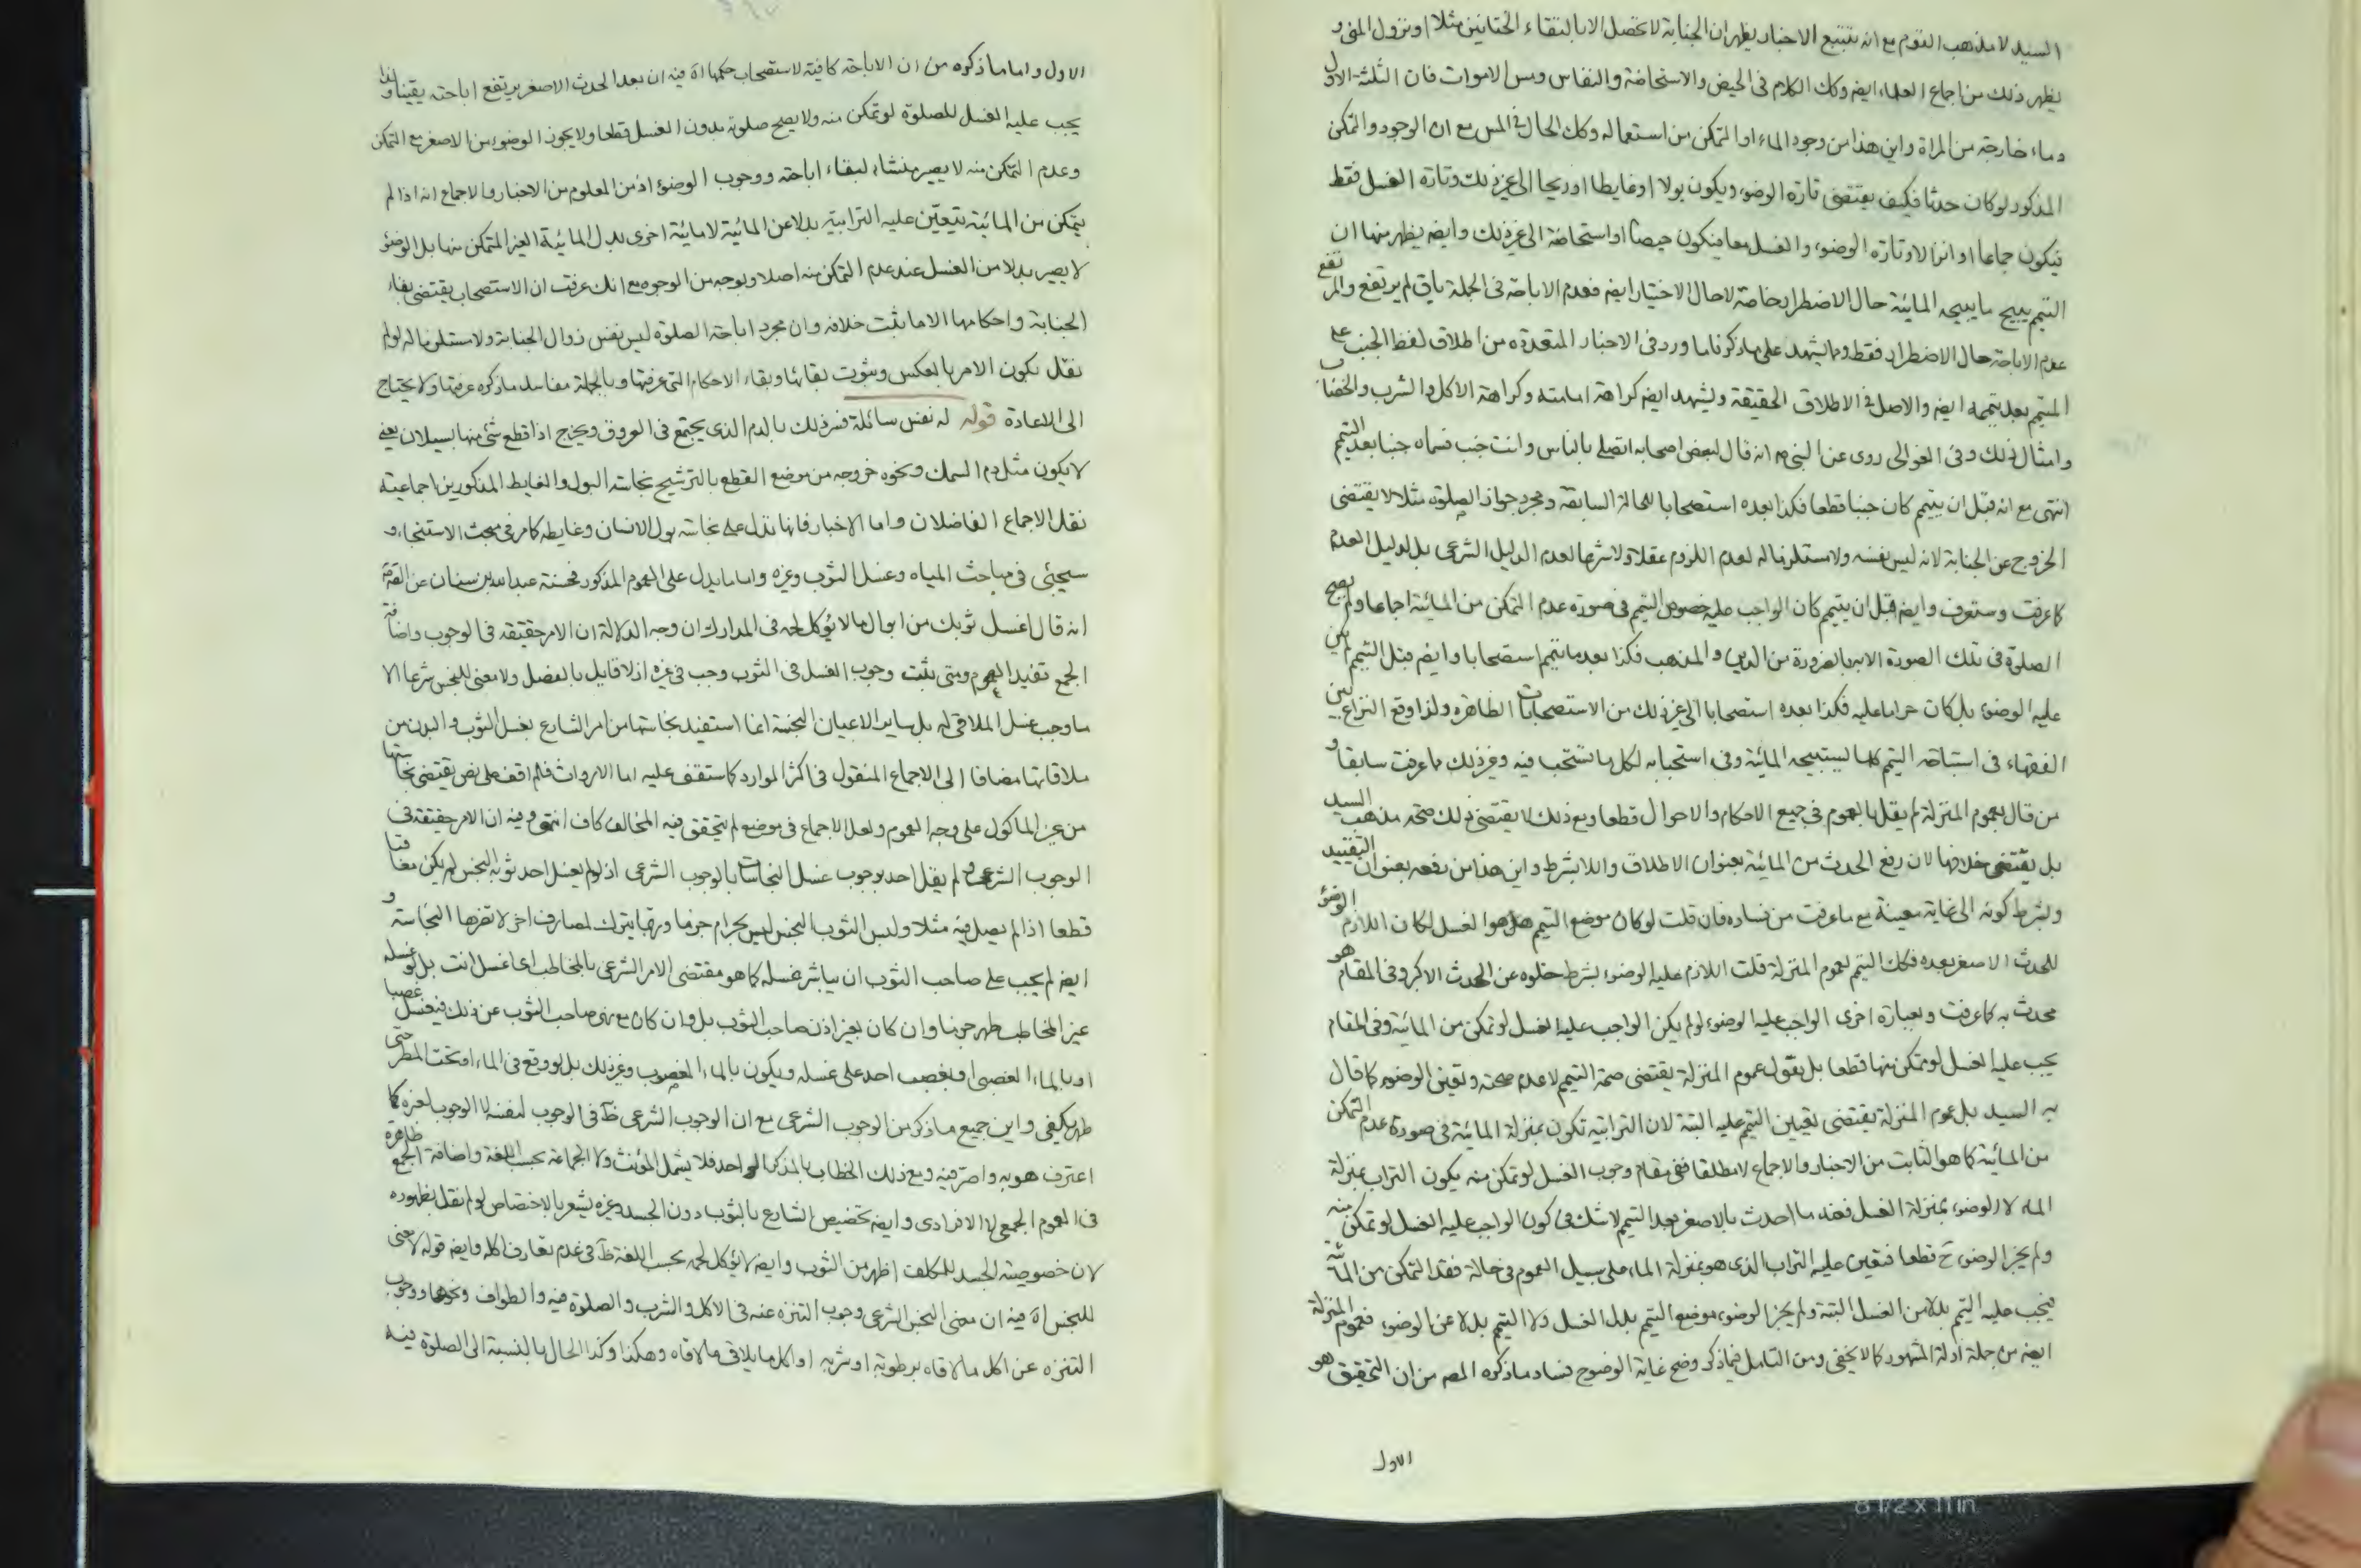 السيد لا مذهب القوم مع انه بتتبع الاخبار يظهر ان الجنابة لا تحصل الا بالتقاء الختانين مثلا او نزول المنى و
يظهر ذلك من اجماع العلماء ايضه وكك الكلام فى الحيض والاستحاضة والنفاس ومس الاموات فان الثلثة الاول
دماء خارجة من المراة واين هذا من وجود الماء او التمكن من استعماله وكك الحال فى المس مع ان الوجود والتمكن
المذكور لو كان حدثا فكيف يقتضى تارة الوضوء ويكون بولا او غايطا او ريحا الى غير ذلك وتارة الغسل فقط
فيكون جماعا او انزالا وتارة الوضوء والغسل معا فيكون حيضا او استحاضة الى غير ذلك وايضه يظهر منها ان
التيمم يبيح ما يبيحه المائية حال الاضطرار خاصة لا حال الاختيار ايضه فعدم الاباحة فى الجملة باق لم يرتفع والمرتفع
عدم الاباحة حال الاضطرار فقط ومما يشهد على ما ذكرنا ما ورد فى الاخبار المتعددة من اطلاق لفظ الجنب على
المتيمم بعد تيممه ايضه والاصل فى الاطلاق الحقيقة ويشهد ايضه كراهة امامته وكراهة الاكل والشرب والخضاب
وامثال ذلك وفى الغوالى روى عن النبى ص انه قال لبعض اصحابه اتصلى بالناس وانت جنب فسماه جنبا بعد التيمم
انتهى مع انه قبل ان يتيمم كان جنبا قطعا فكذا بعده استصحابا للحالة السابقة ومجرد جواز الصلوة مثلا لا يقتضى
الخروج عن الجنابة لانه ليس نفسه ولا مستلزما له لعدم اللزوم عقلا ولا شرعا لعدم الدليل الشرعى بل لدليل العدم
كما عرفت وستعرف وايضه قبل ان يتيمم كان الواجب عليه خصوص التيمم فى صورة عدم التمكن من المائية اجماعا ولم يصح
الصلوة فى تلك الصورة الا به بالضرورة من الدين والمذهب فكذا بعد ما تيمم استصحابا وايضه قبل التيمم لم يكن
عليه الوضوء بل كان حراما عليه فكذا بعده استصحابا الى غير ذلك من الاستصحابات الظاهرة ولذا وقع النزاع بين
الفقهاء فى استباحة التيمم كلما يستبيحه المائية وفى استحبابه لكل ما تستحب فيه وغير ذلك مما عرفت سابقا و
من قال بعموم المنزلة لم يقل بالعموم فى جميع الاحكام والاحوال قطعا ومع ذلك لا يقتضى ذلك صحة مذهب السيد
بل يقتضى خلافها لان رفع الحدث من المائية بعنوان الاطلاق واللابشرط واين هذا من رفعه بعنوان التقييد
وبشرط كونه الى غاية معينة مع ما عرفت من فساده فان قلت لو كان موضع التيمم هذا هو الغسل لكان اللازم الوضوء
للحدث الاصغر بعده فكك التيمم لعموم المنزلة قلت اللازم عليه الوضوء بشرط خلوه عن الحدث الاكبر وفى المقام هو
محدث به كما عرفت وبعبارة اخرى الواجب عليه الوضوء لو لم يكن الواجب عليه الغسل لو تمكن من المائية وفى المقام
يجب عليه الغسل لو تمكن منها قطعا بل نقول عموم المنزلة يقتضى صحة التيمم لا عدم صحته وتعين الوضوء كما قال
به السيد بل عموم المنزلة يقتضى تعيين التيمم عليه البتة لان الترابية تكون بمنزلة المائية فى صورة عدم التمكن
من المائية كما هو الثابت من الاخبار والاجماع لا مطلقا ففى مقام وجوب الغسل لو تمكن منه يكون التراب بمنزلة
الماء لا الوضوء بمنزلة الغسل فعند ما احدث بالاصغر بعد التيمم لا شك فى كون الواجب عليه الغسل لو تمكن منه
ولم يجز الوضوء ح قطعا فتعين عليه التراب الذى هو بمنزلة الماء على سبيل العموم فى حالة فقد التمكن من المائية
فيجب عليه التيمم بدلا من الغسل البتة ولم يجز الوضوء موضع التيمم بدل الغسل ولا التيمم بدلا عن الوضوء فعموم المنزلة
ايضه من جملة ادلة المشهور كما لا يخفى ومن التامل فيما ذكر وضح غاية الوضوح فساد ما ذكره المصه من ان التحقيق هو
الاول
الاول واما ما ذكره من ان الاباحة كافية لاستصحاب حكمها اه فيه ان بعد الحدث الاصغر يرتفع اباحته يقينا ولذا
يجب عليه الغسل للصلوة لو تمكن منه ولا يصح صلوته بدون الغسل قطعا ولا يجوز الوضوء من الاصغر مع التمكن
وعدم التمكن منه لا يصير منشاء لبقاء اباحته ووجوب الوضوء اذ من المعلوم من الاخبار والاجماع انه اذا لم
يتمكن من المائية يتعين عليه الترابية بدلا عن المائية لا مائية اخرى بدل المائية الغير المتمكن منها بل الوضوء
لا يصير بدلا من الغسل عند عدم التمكن منه اصلا وبوجه من الوجوه مع انك عرفت ان الاستصحاب يقتضى بقاء
الجنابة واحكامها الا ما ثبت خلافه وان مجرد اباحة الصلوة ليس نفس زوال الجنابة ولا مستلزما له لو لم
نقل بكون الامر بالعكس وثبوت بقائها وبقاء الاحكام التى عرفتها وبالجملة مفاسد ما ذكره عرفتها ولا يحتاج
الى الاعادة قوله له نفس سائلة فسر ذلك بالدم الذى يجتمع فى العروق ويخرج اذا قطع شئ منها بسيلان يعنى
لا يكون مثل دم السمك ونحوه خروجه من موضع القطع بالترشيح نجاسة البول والغايط المذكورين اجماعية
نقل الاجماع الفاضلان واما الاخبار فانها تدل على نجاسة بول الانسان وغايطه كما مر فى مبحث الاستنجاء و
سيجئى فى مباحث المياه وغسل الثوب وغيره واما ما يدل على العموم المذكور فحسنة عبد الله بن سنان عن الص ع
انه قال اغسل ثوبك من ابوال ما لا يؤكل لحمه فى المدارك ان وجه الدلالة ان الامر حقيقة فى الوجوب واضافة
الجمع تفيد العموم ومتى ثبت وجوب الغسل فى الثوب وجب فى غيره اذ لا قايل بالفصل ولا معنى للنجس شرعا الا
ما وجب غسل الملاقى له بل ساير الاعيان النجسة انما استفيد نجاستها من امر الشارع بغسل الثوب والبدن من
ملاقاتها مضافا الى الاجماع المنقول فى اكثر الموارد كما ستقف عليه اما الارواث فلم اقف على نص يقتضى نجاستها
من غير الماكول على وجه العموم ولعل الاجماع فى موضع لم يتحقق فيه المخالف كاف انتهى وفيه ان الامر حقيقة فى
الوجوب الشرعى ولم يقل احد بوجوب غسل النجاسات بالوجوب الشرعى اذ لو لم يغسل احد ثوبه النجس لم يكن معاقبا
قطعا اذا لم يصل فيه مثلا ولبس الثوب النجس ليس بحرام جزما وربما يترك لمصارف اخر لا تضرها النجاسة و
ايضه لم يجب على صاحب الثوب ان يباشر غسله كما هو مقتضى الامر الشرعى بالمخاطب اى اغسل انت بل لو غسله
غير المخاطب طهر جزما وان كان بغير اذن صاحب الثوب بل وان كان مع نهى صاحب الثوب عن ذلك فيغسل غصبا
او بالماء الغصبى او يغصب احد على غسله ويكون بالماء المغصوب وغير ذلك بل لو وقع فى الماء او تحت المطر حتى
طهر يكفى واين جميع ما ذكر من الوجوب الشرعى مع ان الوجوب الشرعى ظ فى الوجوب لنفسه لا الوجوب لغيره كما
اعترف هو به واصر فيه ومع ذلك الخطاب بالمذكر الواحد فلا يشمل المؤنث ولا الجماعة بحسب اللغة واضافة الجمع ظاهرة
فى العموم الجمعى لا الافرادى وايضه تخصيص الشارع بالثوب دون الجسد وغيره يشعر بالاختصاص لو لم نقل بظهوره
لان خصوصية الجسد للمكلف اظهر من الثوب وايضه لا يؤكل لحمه بحسب اللغة ظ فى عدم تعارف اكله وايضه قوله لا معنى
للنجس اه فيه ان معنى النجس الشرعى وجوب التنزه عنه فى الاكل والشرب والصلوة فيه والطواف ونحوها ووجوب
التنزه عن اكل ما لاقاه برطوبة او شربه او اكل ما يلاقى ما لاقاه وهكذا وكذا الحال بالنسبة الى الصلوة فيه